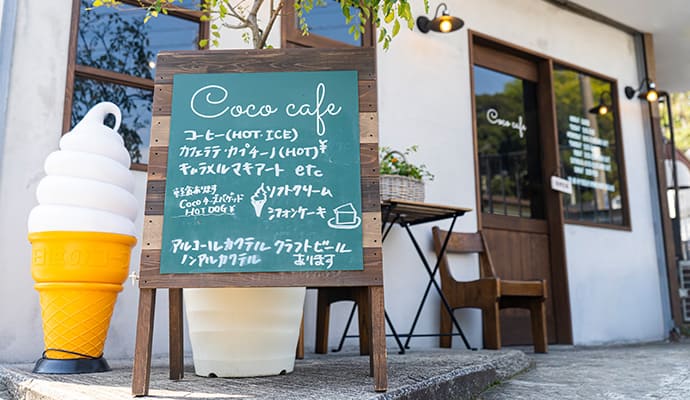 Coco cafe
コーヒー(HOT・ICE)
カフェラテ・カプチーノ(HOT)
キャラメルマキアート etc
軽食あります
Coco
HOT DOG
ソフトクリーム
シフォンケーキ
アルコールカクテル クラフトビール
ノンアルカクテル あります
Coco cafe